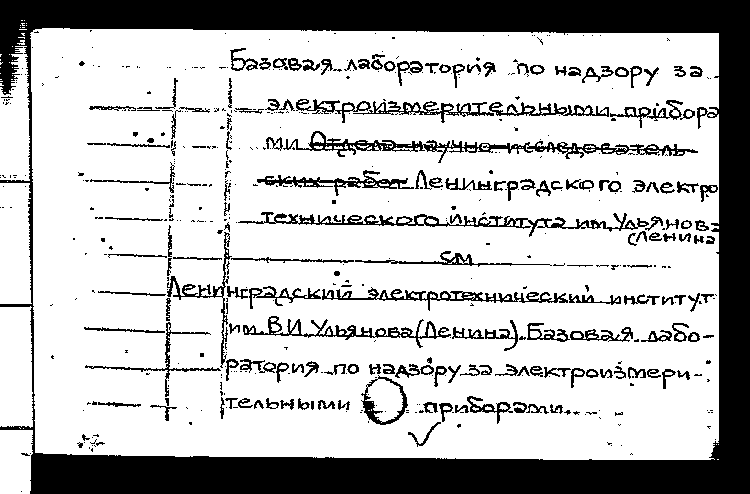 Базовая лаборатория по надзору за
электроизмерительными прибора
ми Отдела научно-исследователь-
ских работ Ленинградского электро
технического института им. Ульянова
(Ленина
см
Ленинградский электротехнический институт
им. В.И. Ульянова (Ленина). Базовая лабо-
ратория по надзору за электроизмери-
тельными приборами.